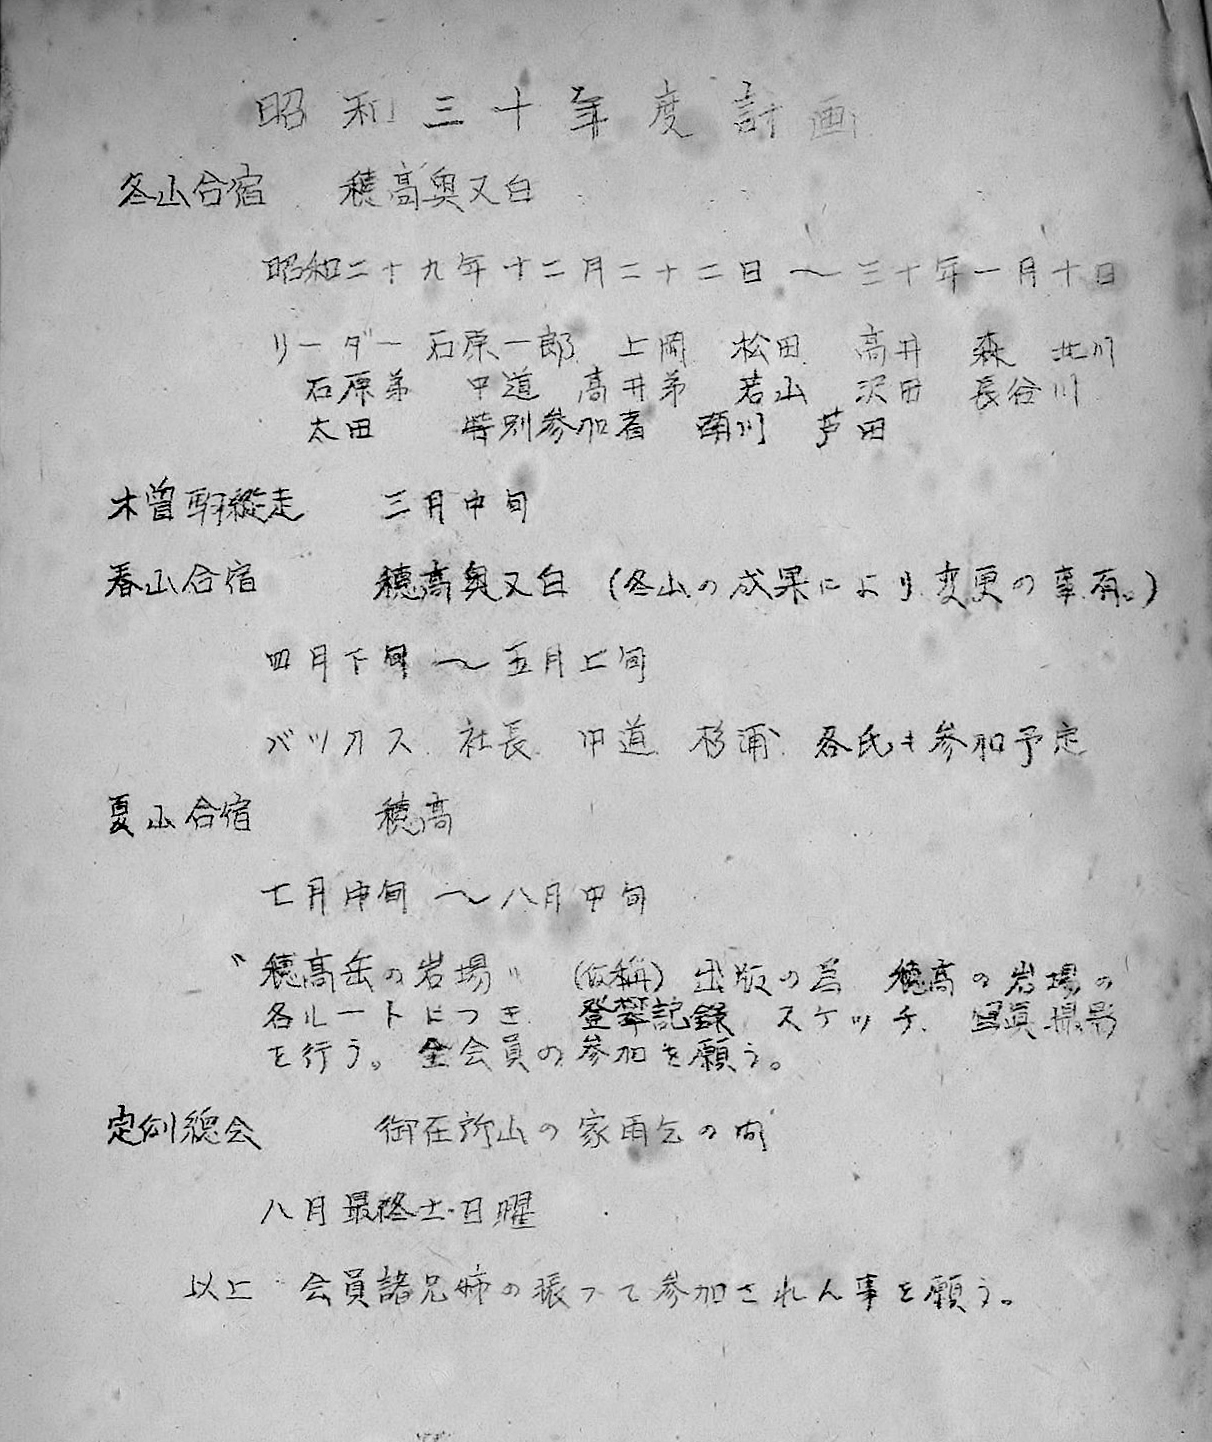 昭和三十年度計画
冬山合宿 穂高奥又白
昭和二十九年十二月二十二日～三十年一月十日
リーダー 石原一郎 上岡 松田 高井 森 北川
石原弟 中道 高井弟 若山 沢田 長谷川
太田 特別参加者 須川 芦田
木曽駒縦走 三月中旬
春山合宿 穂高奥又白 (冬山の成果により変更の事有。)
四月下旬～五月上旬
バッカス 社長 中道 杉浦 各氏も参加予定
夏山合宿 穂高
七月中旬～八月中旬
〝穂高岳の岩場〟 (仮称) 出版の為 穂高の岩場の
各ルートにつき 登攀記録 スケッチ、写真撮影
を行う。全会員の参加を願う。
定例総会 御在所山の家雨乞の間
八月最終土・日曜
以上 会員諸兄姉の振つて参加されん事を願う。